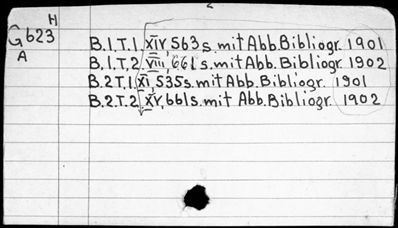 H
G623
A
B.1.T.1. XIV, 563 s. mit Abb. Bibliogr. 1901
B.1.T.2. VIII, 661 s. mit Abb. Bibliogr. 1902
B.2T.1. XI, 535 s. mit Abb. Bibliogr. 1901
B.2.T.2. XV, 661 s. mit Abb. Bibliogr. 1902